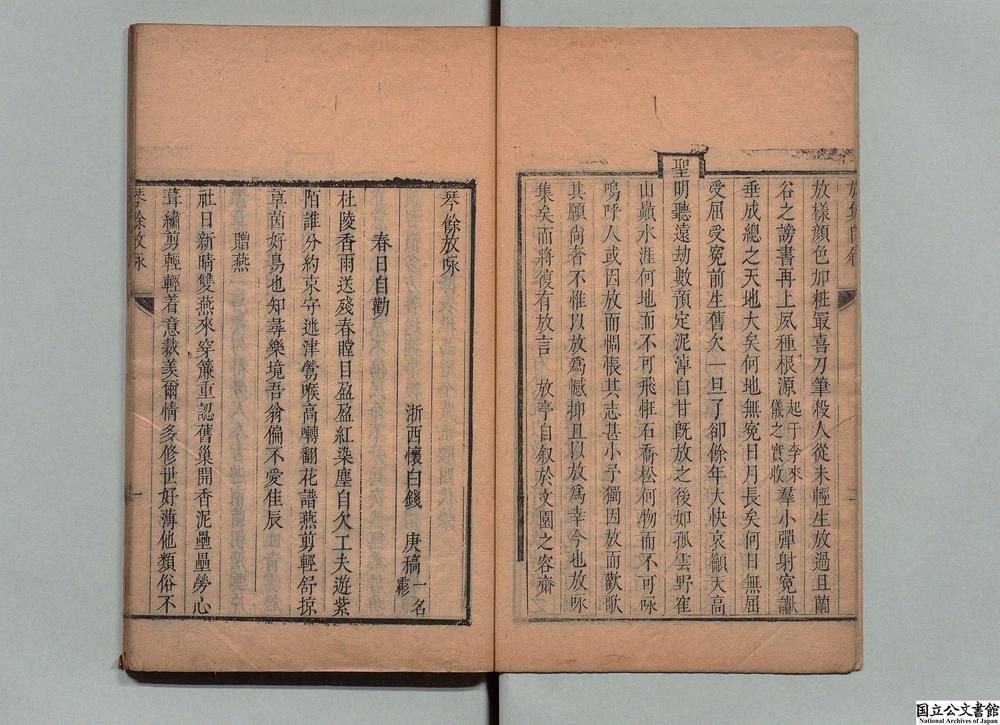 放樣顏色加粧最喜刀筆殺人從來輕生放過且蘭
谷之謗書再上夙種根源起于李來儀之實收羣小彈射寃讟
垂成總之天地大矣何地無寃日月長矣何日無屈
受屈受寃前生舊欠一旦了卻餘年大快哀籲天高
聖明聽遠劫數預定泥淖自甘旣放之後如孤雲野寉
山巔水涯何地而不可飛恠石喬松何物而不可咏
嗚呼人或因放而惆悵其志甚小予獨因放而歡歌
其願尙奢不惟以放爲憾抑且以放爲幸今也放咏
集矣而將復有放言 放亭自叙於文園之容齋
琴餘放咏
浙西懷白錢 庚稿一名霦
春日自勸
杜陵香雨送殘春瞠目盈盈紅染塵自欠工夫遊紫
陌誰分約束守迷津鶯喉高囀翻花譜燕剪輕舒掠
草茵好鳥也知尋樂境吾翁偏不愛佳辰
贈燕
社日新晴雙燕來穿簾重認舊巢開香泥壘壘勞心
葺繡剪輕輕着意裁羨爾情多修世好薄他類俗不
琴餘放咏
一